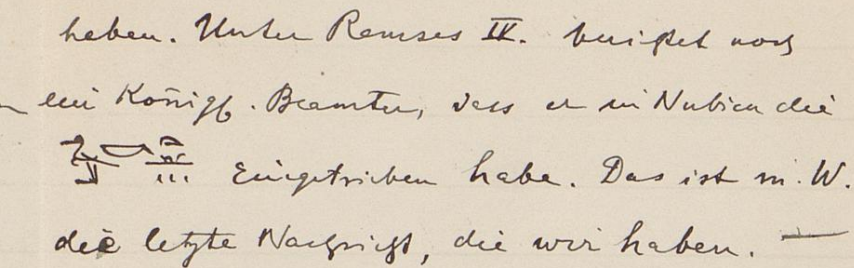 haben. Unter Ramses IX. berichtet noch
ein Königl. Beamter, dass er in Nubien die
eingetrieben habe. Das ist m. W.
die letzte Nachricht, die wir haben. —